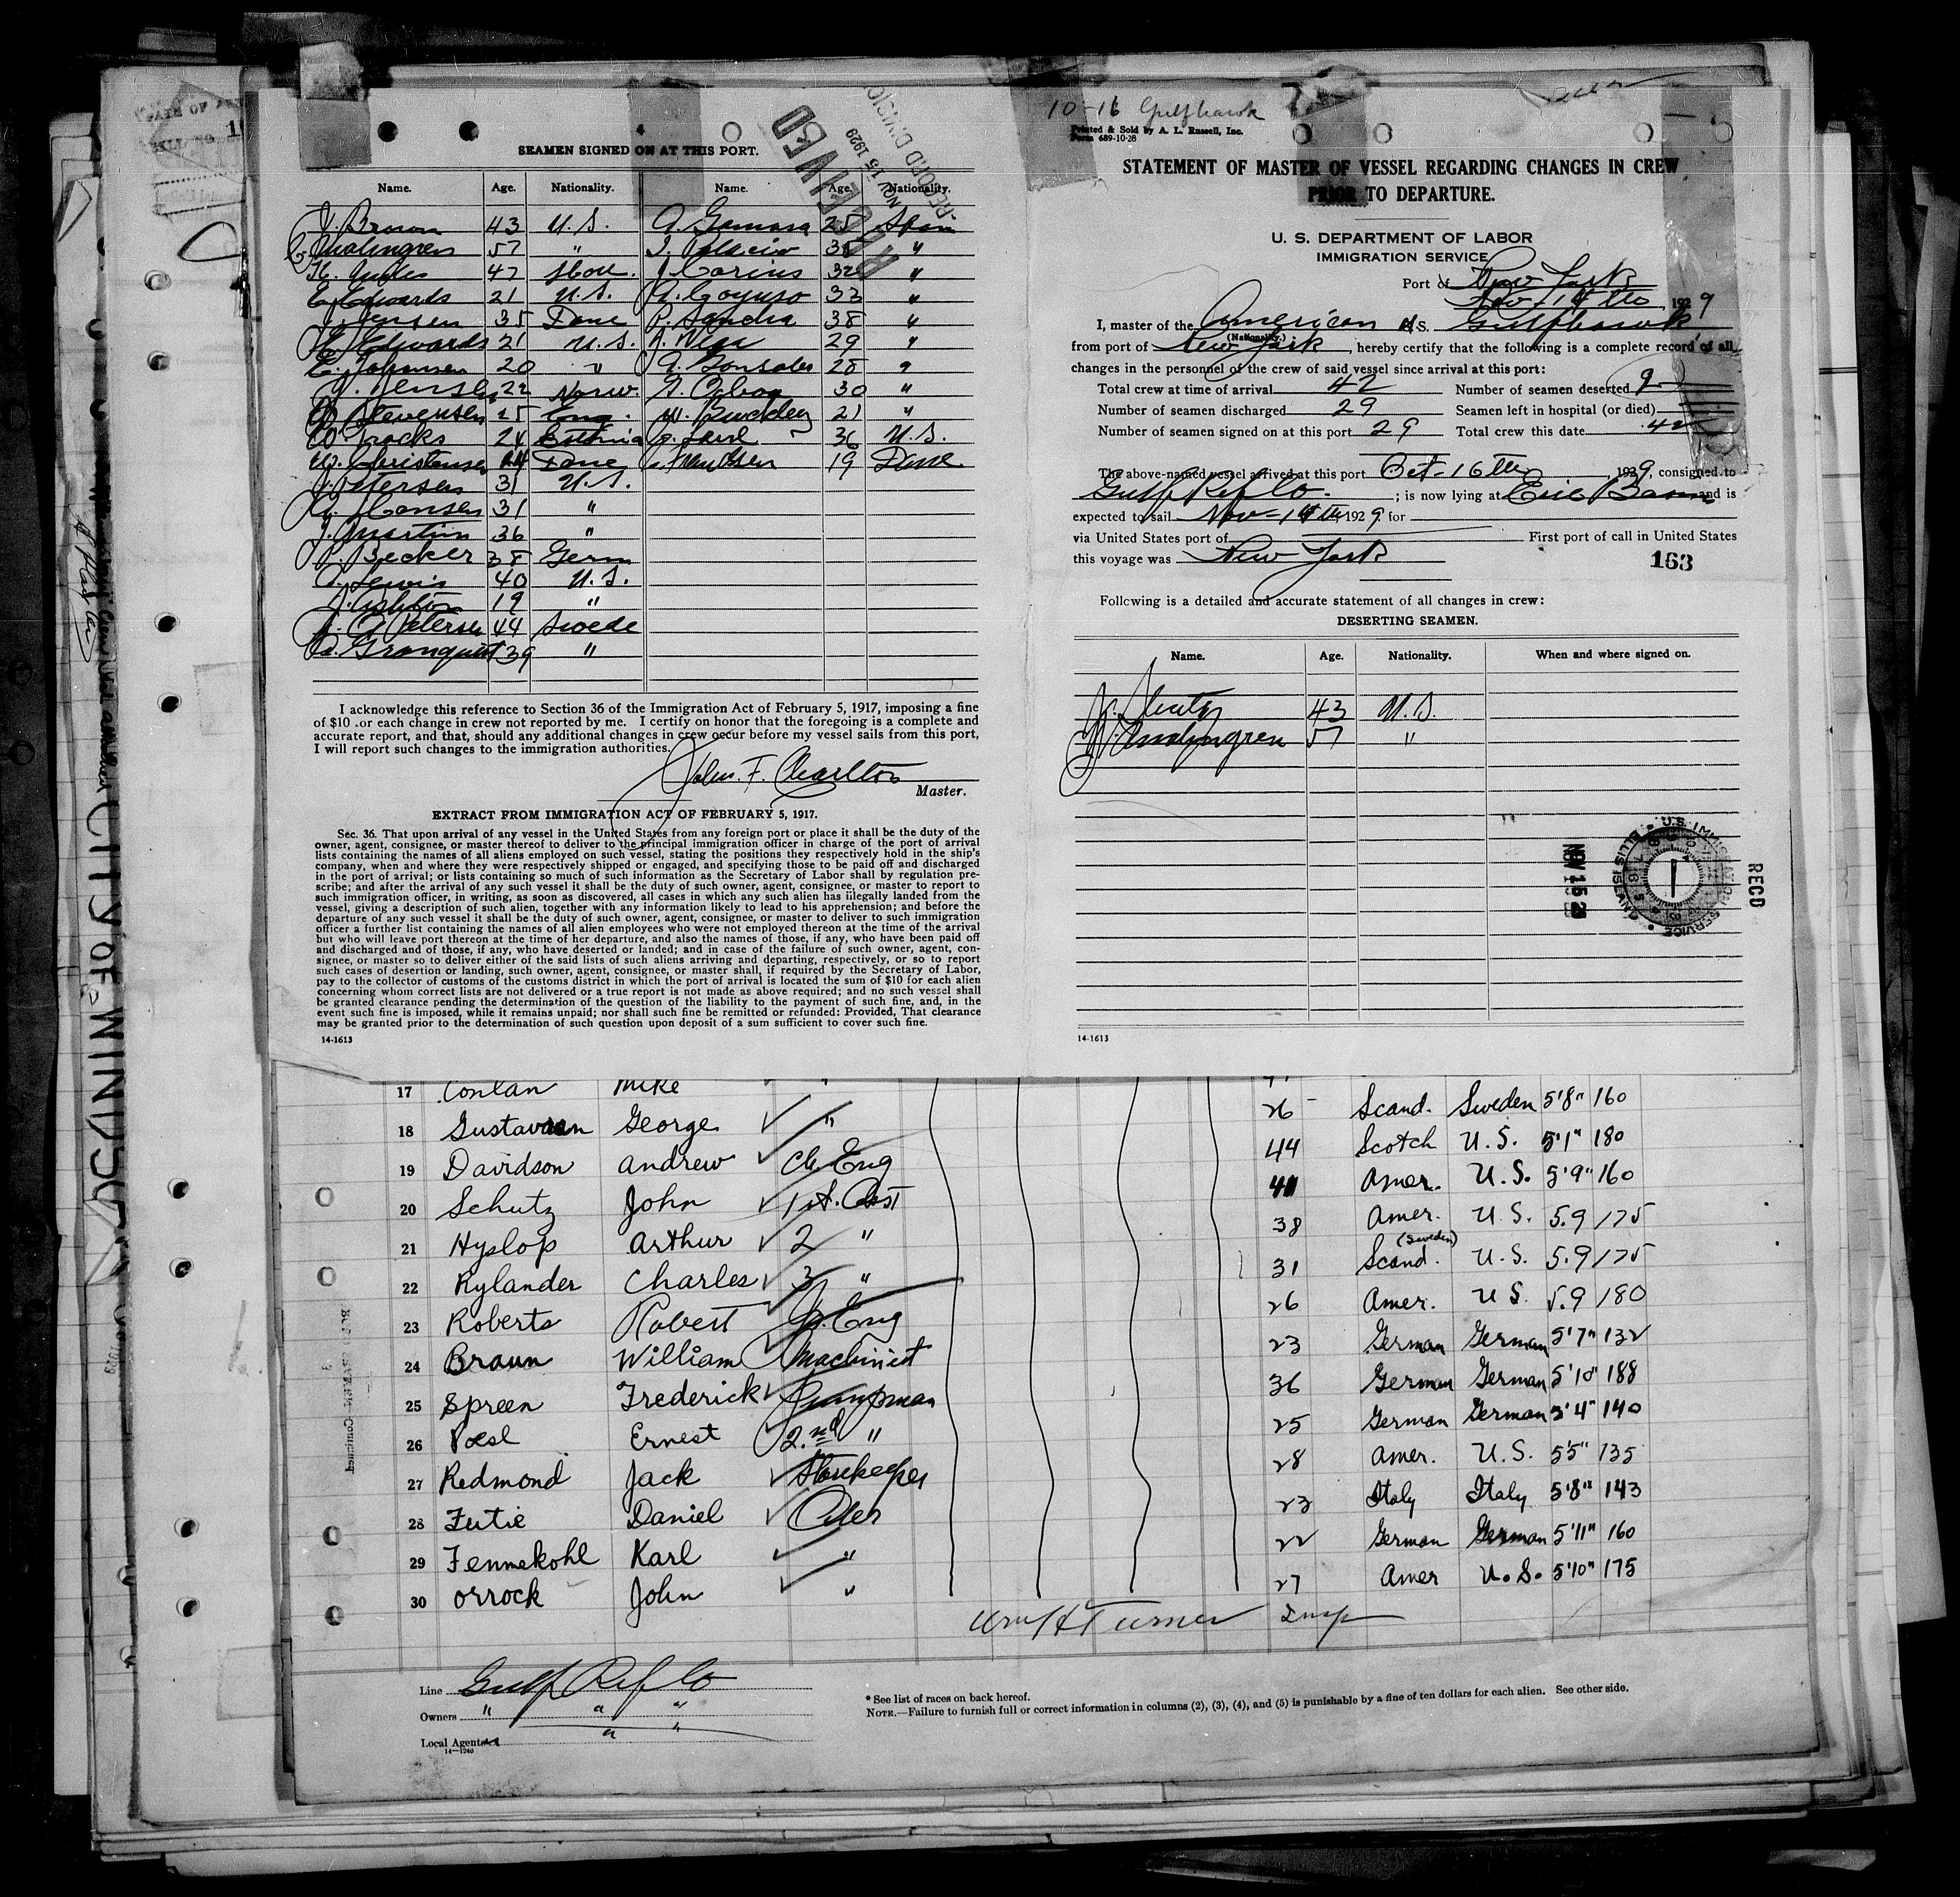 4
SEAMEN SIGNED ON AT THIS PORT.
RECEIVED
NOV 15 1929
RECORD DIVISION
Name. Age. Nationality. Name. Age. Nationality.
J. Brown 43 U.S. A. Gamasa 25 Span
Malmgren 57 " J. Palacio 35 "
47 J. Carius 32 "
E. Edwards 21 U.S. 33 "
Jensen 35 Dane P. 38 "
Edwards 21 U.S. J. 29 "
E. Johansen 20 " A. Gonsales 28 "
22 Norw. 30 "
Stevensen 25 Eng. W. Buckley 21 "
24 36 U.S.
W. Christensen 24 Dane Knudsen 19 Dane
J. Petersen 31 U.S.
Hansen 31 "
J. Martin 36 "
P. Becker 38 Germ
Lewis 40 U.S.
J. Ashton 19 "
Petersen 44 Swede
Granquist 39 "
I acknowledge this reference to Section 36 of the Immigration Act of February 5, 1917, imposing a fine
of $10 .or each change in crew not reported by me. I certify on honor that the foregoing is a complete and
accurate report, and that, should any additional changes in crew occur before my vessel sails from this port,
I will report such changes to the immigration authorities.
John F. Charlton
Master.
EXTRACT FROM IMMIGRATION ACT OF FEBRUARY 5, 1917.
Sec. 36. That upon arrival of any vessel in the United States from any foreign port or place it shall be the duty of the
owner, agent, consignee, or master thereof to deliver to the principal immigration officer in charge of the port of arrival
lists containing the names of all aliens employed on such vessel, stating the positions they respectively hold in the ship's
company, when and where they were respectively shipped or engaged, and specifying those to be paid off and discharged
in the port of arrival; or lists containing so much of such information as the Secretary of Labor shall by regulation pre-
scribe; and after the arrival of any such vessel it shall be the duty of such owner, agent, consignee, or master to report to
such immigration officer, in writing, as soon as discovered, all cases in which any such alien has illegally landed from the
vessel, giving a description of such alien, together with any information likely to lead to his apprehension; and before the
departure of any such vessel it shall be the duty of such owner, agent, consignee, or master to deliver to such immigration
officer a further list containing the names of all alien employees who were not employed thereon at the time of the arrival
but who will leave port thereon at the time of her departure, and also the names of those, if any, who have been paid off
and discharged and of those, if any, who have deserted or landed; and in case of the failure of such owner, agent, con-
signee, or master so to deliver either of the said lists of such aliens arriving and departing, respectively, or so to report
such cases of desertion or landing, such owner, agent, consignee, or master shall, if required by the Secretary of Labor,
pay to the collector of customs of the customs district in which the port of arrival is located the sum of $10 for each alien
concerning whom correct lists are not delivered or a true report is not made as above required; and no such vessel shall
be granted clearance pending the determination of the question of the liability to the payment of such fine, and, in the
event such fine is imposed, while it remains unpaid; nor shall such fine be remitted or refunded: Provided, That clearance
may be granted prior to the determination of such question upon deposit of a sum sufficient to cover such fine.
14-1613
10-16 Gulfhawk
Printed & Sold by A. L. Russell, Inc.
Form 689-10-28
STATEMENT OF MASTER OF VESSEL REGARDING CHANGES IN CREW
PRIOR TO DEPARTURE.
U. S. DEPARTMENT OF LABOR
IMMIGRATION SERVICE
Port of New York
Nov-14th, 1929
I, master of the American S.S. Gulfhawk
(Nationality.)
from port of New York, hereby certify that the following is a complete record of all
changes in the personnel of the crew of said vessel since arrival at this port:
Total crew at time of arrival 42 Number of seamen deserted 2
Number of seamen discharged 29 Seamen left in hospital (or died)
Number of seamen signed on at this port 29 Total crew this date 42
The above-named vessel arrived at this port Oct-16th, 1929, consigned to
Gulf Ref Co.; is now lying at Erie Basin and is
expected to sail Nov-14th, 1929 for
via United States port of First port of call in United States
this voyage was New York
163
Following is a detailed and accurate statement of all changes in crew:
DESERTING SEAMEN.
Name. Age. Nationality. When and where signed on.
J. Shutz 43 U.S.
Malmgren 57 "
RECD
NOV 15 29
U.S. IMMIGRATION SERVICE
ELLIS ISLAND
14-1613
CITY OF WINDSOR
17 Conlan Mike "
18 Gustavson George " 26 Scand. Sweden 5'8" 160
19 Davidson Andrew Ch. Eng 44 Scotch U.S. 5'1" 180
20 Schutz John 1st. Asst 41 Amer. U.S. 5'9" 160
21 Hyslop Arthur 2 " 38 Amer. U.S. 5.9 175
22 Rylander Charles 3 " 31 Scand. (Sweden) U.S. 5.9 175
23 Roberts Robert Jr. Eng 26 Amer. U S. 5.9 180
24 Braun William Machinist 23 German German 5'7" 132
25 Spreen Frederick Pumpman 36 German German 5'10" 188
26 Poesl Ernest 2.nd " 25 German German 5'4" 140
27 Redmond Jack Storekeeper 28 Amer. U.S. 5'5" 135
28 Futie Daniel Oiler 23 Italy Italy 5'8" 143
29 Fennekohl Karl " 22 German German 5'11" 160
30 Orrock John " 27 Amer U.S. 5'10" 175
Wm H Turner Insp
Line Gulf Ref Co
Owners " " "
Local Agents " "
14—1240
* See list of races on back hereof.
NOTE.—Failure to furnish full or correct information in columns (2), (3), (4), and (5) is punishable by a fine of ten dollars for each alien. See other side.